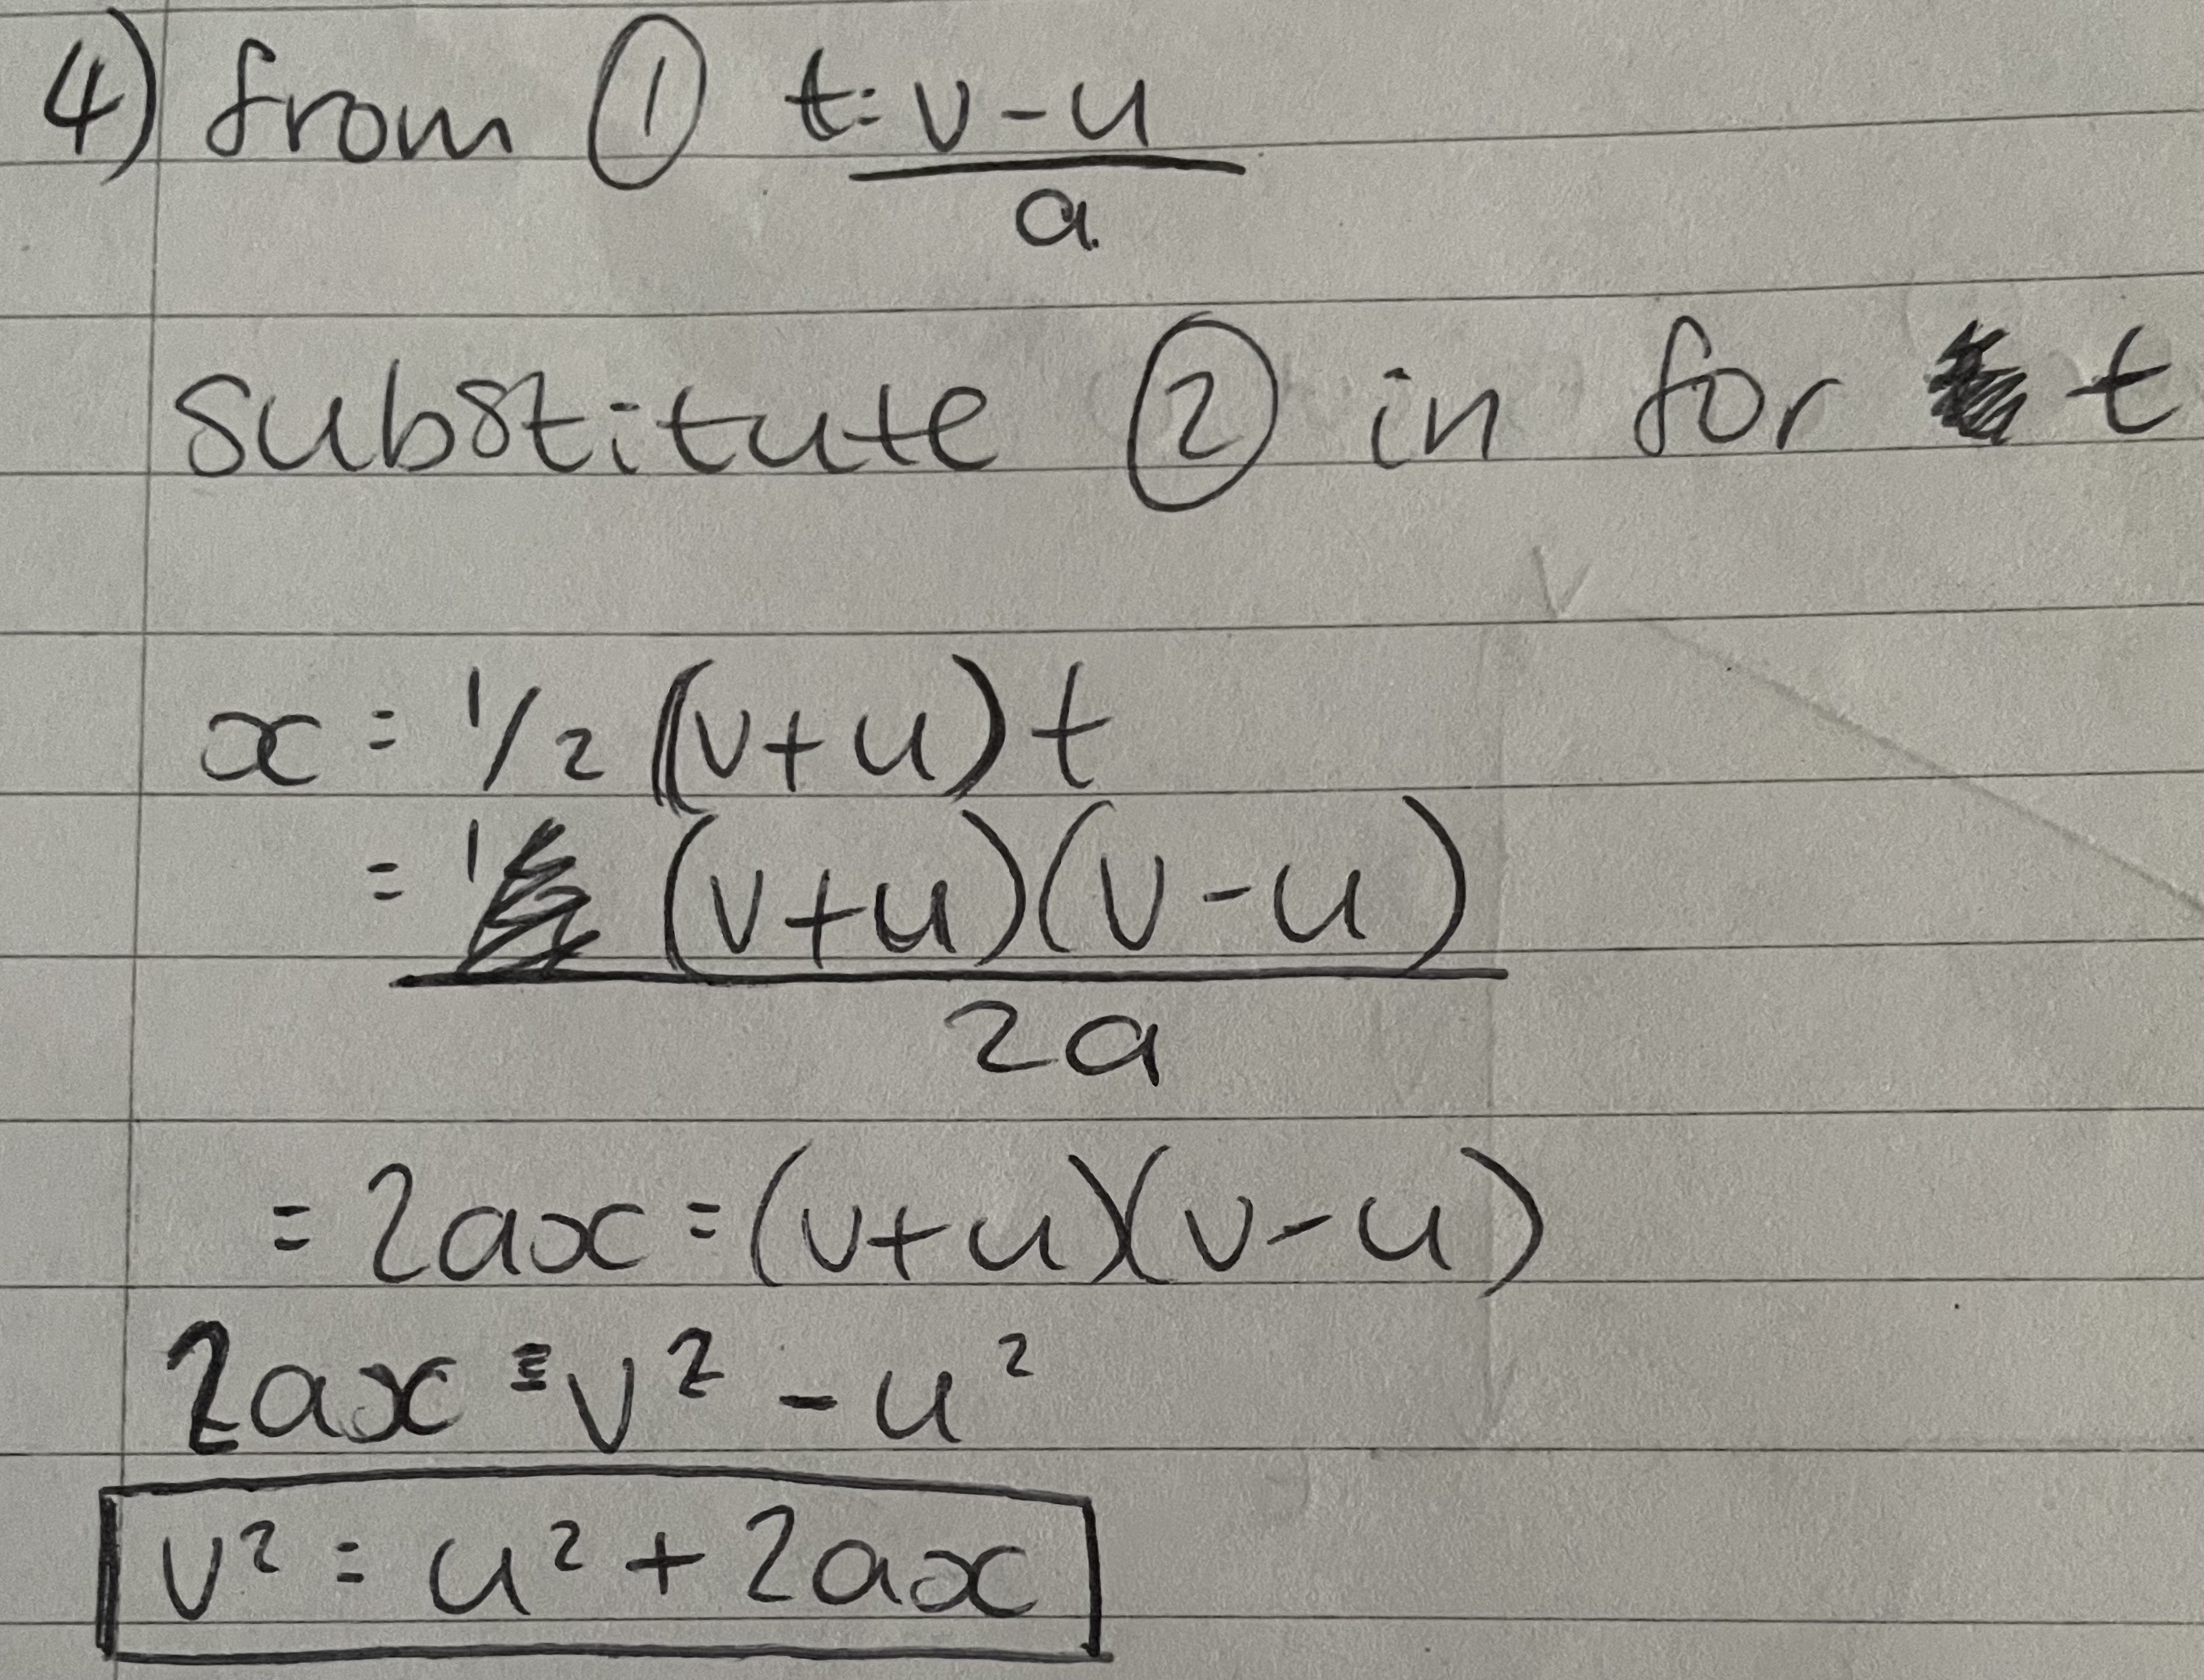 4) from ① t = v - u
a
substitute ② in for t
x = 1/2 (v+u) t
= (v+u)(v-u)
2a
= 2ax = (v+u)(v-u)
2ax = v² - u²
v² = u² + 2ax